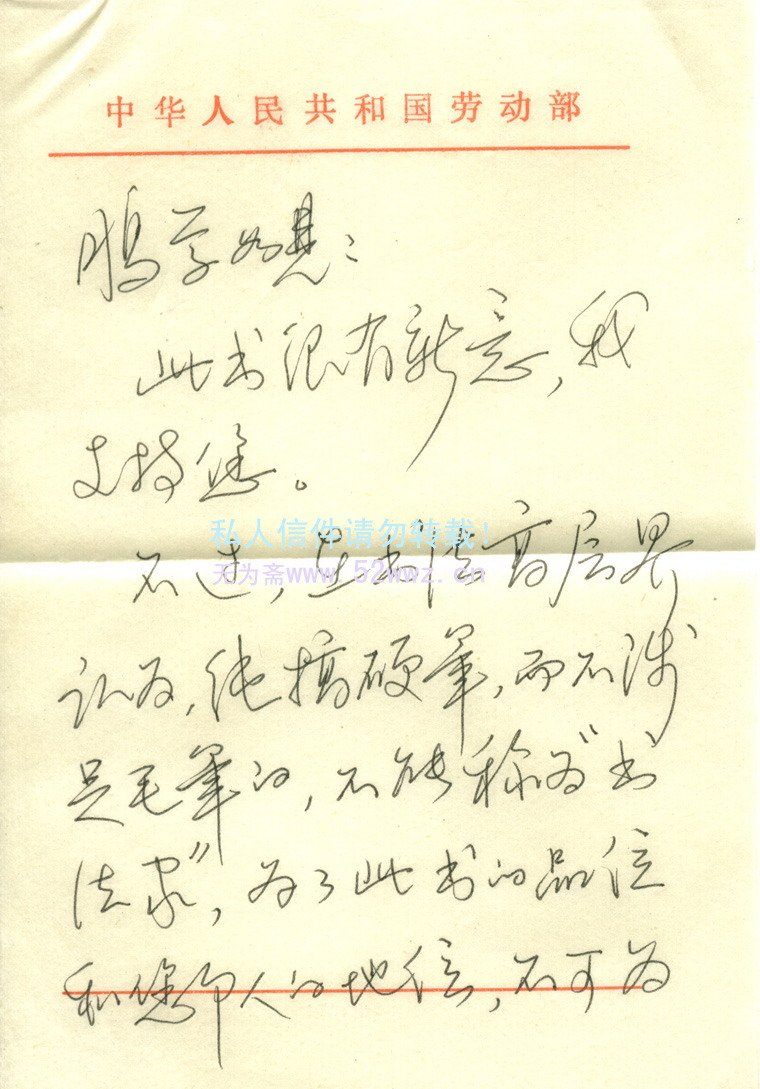 中华人民共和国劳动部
鹏学如晤：
此书很有新意，我
支持您。
私人信件请勿转载！
不过，在书法高层界
无为斋www.52wwz.cn
认为，纯搞硬笔，而不涉
足毛笔的，不能称为“书
法家”，为了此书的品位
和您印人的地位，不可为